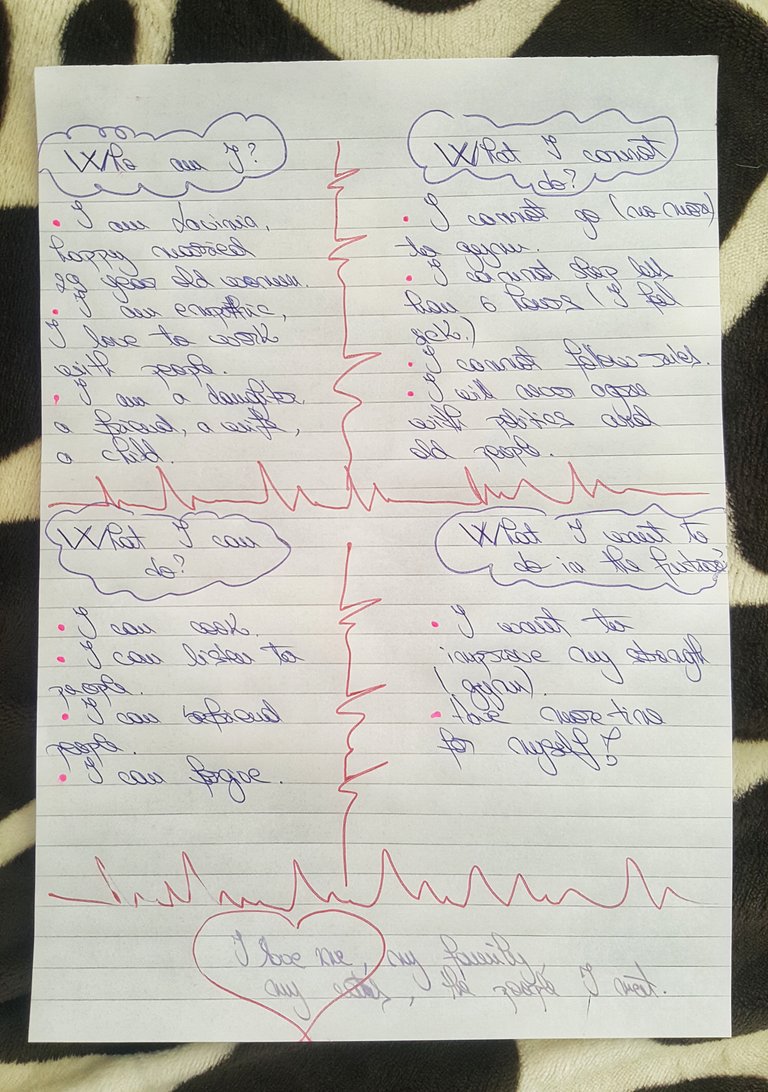 Who am I?
• I am Lavinia,
happy married
29 year old woman.
• I am empathic,
I love to work
with people.
• I am a daughter,
a friend, a wife,
a child.
What I cannot
do?
• I cannot go (no more)
to gym.
• I cannot sleep less
than 6 hours (I feel
sick.)
• I cannot follow rules.
• I will never agree
with politics and
old people.
What I can
do?
• I can cook.
• I can listen to
people.
• I can befriend
people.
• I can forgive.
What I want to
do in the future?
• I want to
improve my strength
(gym).
• Have more time
for myself!
I love me, my family,
my, the people I meet.